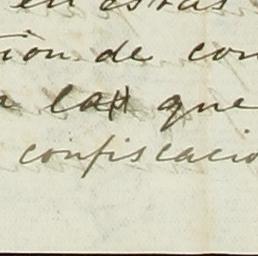 en estas
ion de con
a las que
confiscacio